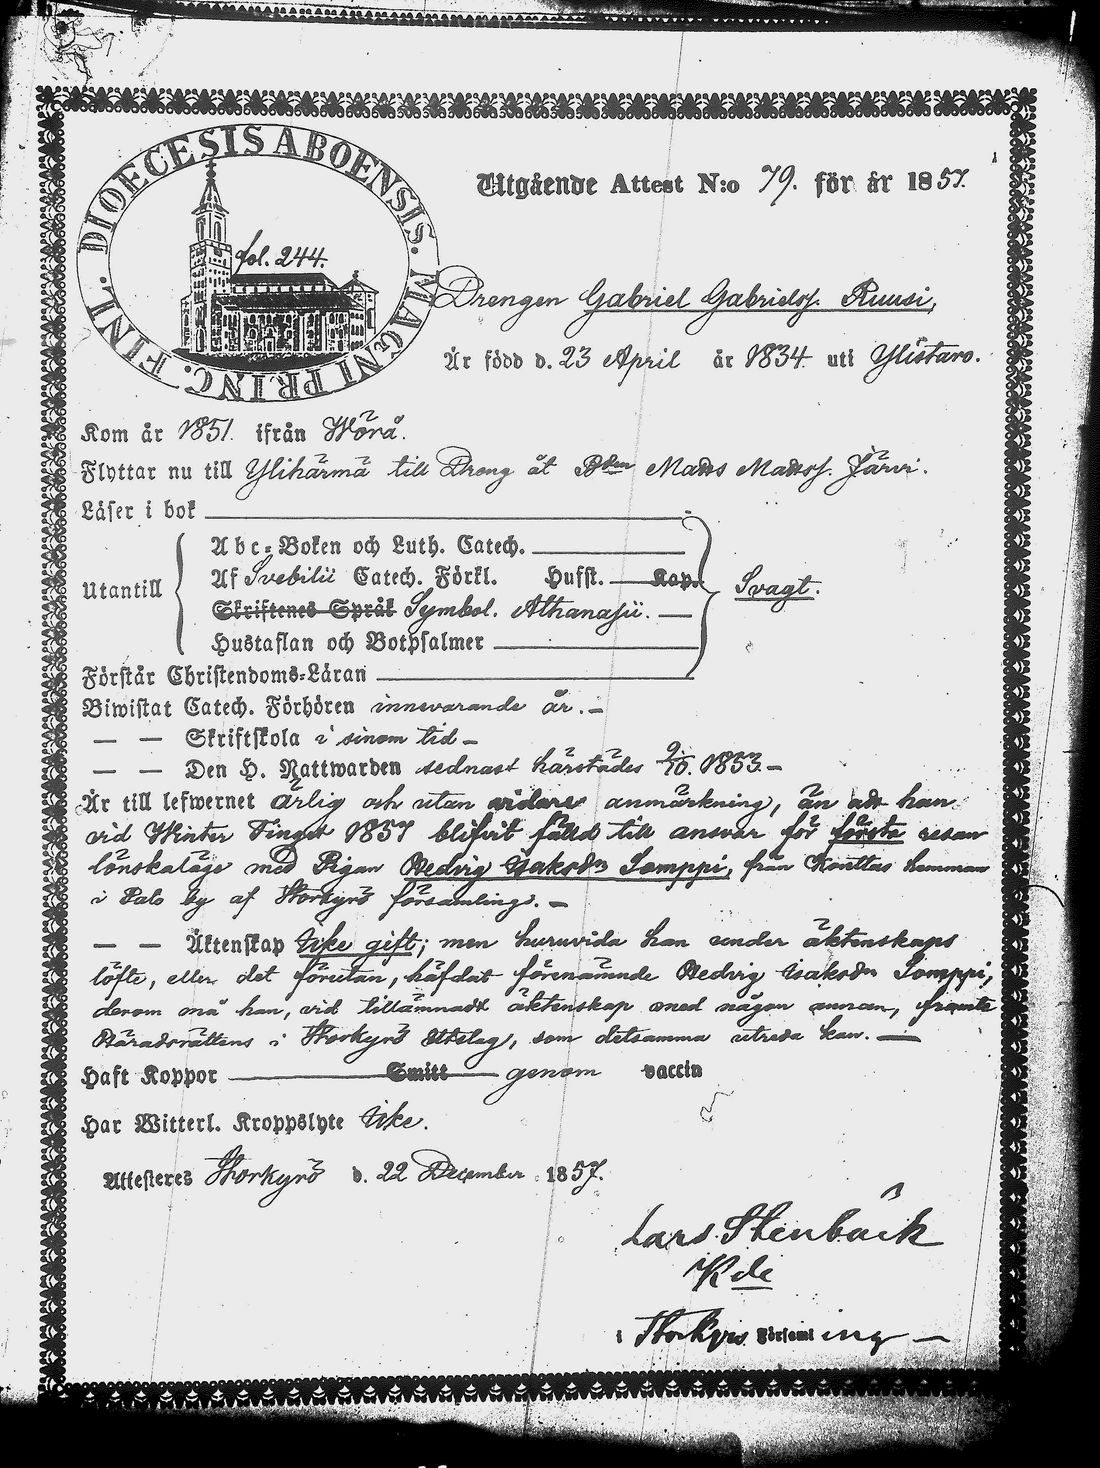 DIOECESIS ABOENSIS. MAGNI PRINC. FINL.
fol. 244.
Utgående Attest N:o 79. för år 1857.
Drengen Gabriel Gabrielsf. Ruusi,
Är född d. 23 April år 1834 uti Ylistaro.
Kom år 1851. ifrån Wörå.
Flyttar nu till Ylihärmä till Dreng åt Bden Matts Mattsf. Järvi.
Läser i bok
Utantill
Abc-Boken och Luth. Catech.
Af Svebilii Catech. Förkl. Husst. Kap.
Skriftenes Språk Symbol. Athanasii.
Hustaflan och Botpsalmer
Svagt.
Förstår Christendoms-Läran
Biwistat Catech. Förhören innevarande år.
— — Skriftskola i sinom tid
— — Den H. Nattwarden sednast härstädes 9/10. 1853
Är till lefwernet ärlig och utan vidare anmärkning, än att han
vid Winter Tinget 1857 blifvit fälld till ansvar för första resan
lönskaläge med Pigan Hedvig Isaksdr Somppi, från Konttas hemman
i Palo by af Storkyrö församling. —
— — Äktenskap Icke gift; men huruvida han under äktenskaps
löfte, eller det förutan, häfdat förenämnde Hedvig Isaksdr Somppi,
derom må han, vid tillämnadt äktenskap med någon annan, framte
Häradsrättens i Storkyrö Utslag, som detsamma utreda kan. —
Haft Koppor Smitt genom vaccin
Har Witterl. Kroppslyte Icke.
Attesteres Storkyrö d. 22 December 1857.
Lars Stenbäck
Kde
i Storkyro Församling —